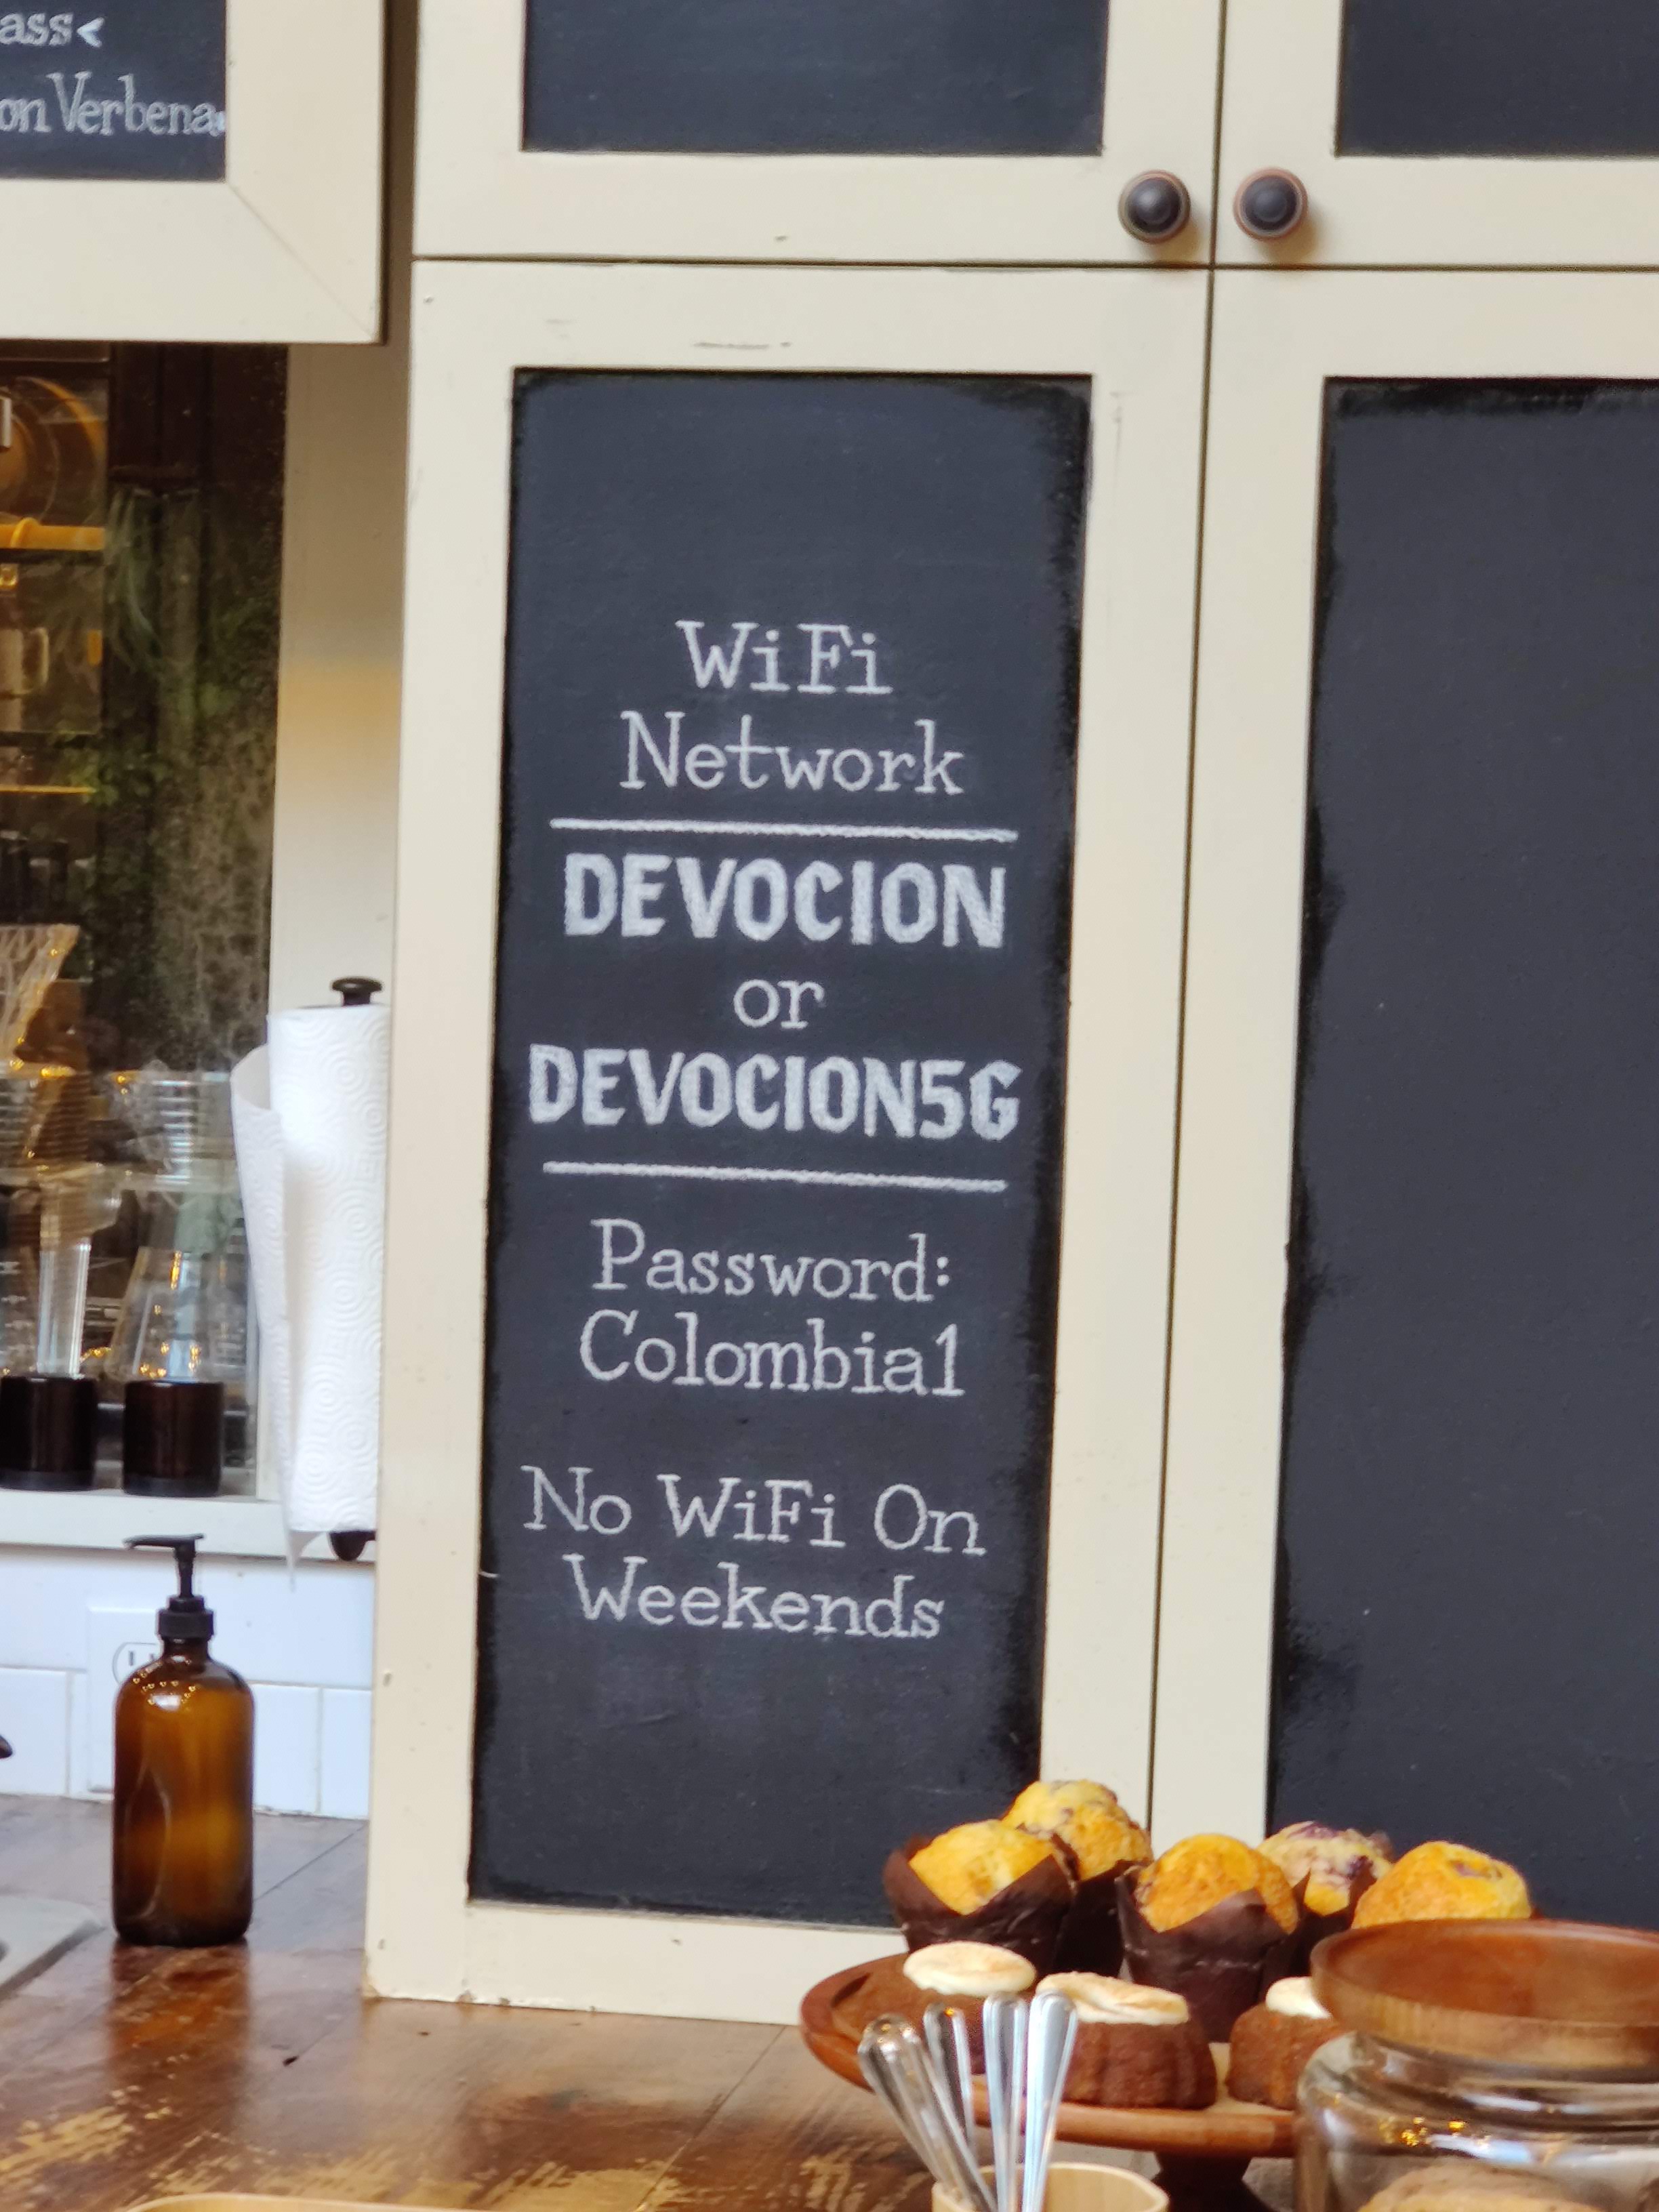 Verbena
WiFi
Network
DEVOCION
or
DEVOCION5G
Password:
Colombia1
No WiFi On
Weekends